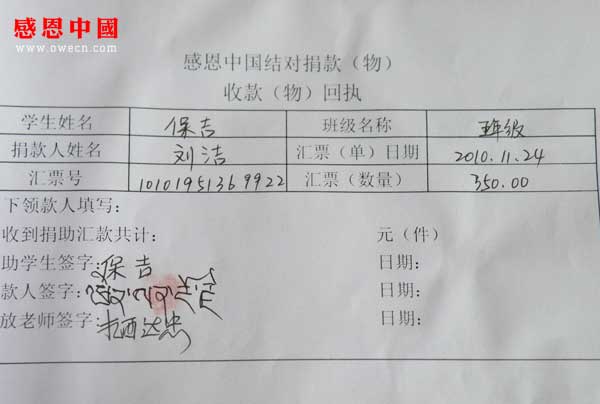 感恩中國
www.owecn.com
感恩中国结对捐款（物）
收款（物）回执
学生姓名 保吉 班级名称 五年级
捐款人姓名 刘洁 汇票（单）日期 2010.11.24
汇票号 10101951369922 汇票（数量） 350.00
下领款人填写：
收到捐助汇款共计： 元（件）
助学生签字：保吉 日期：
款人签字： 日期：
放老师签字：扎西达忠 日期：